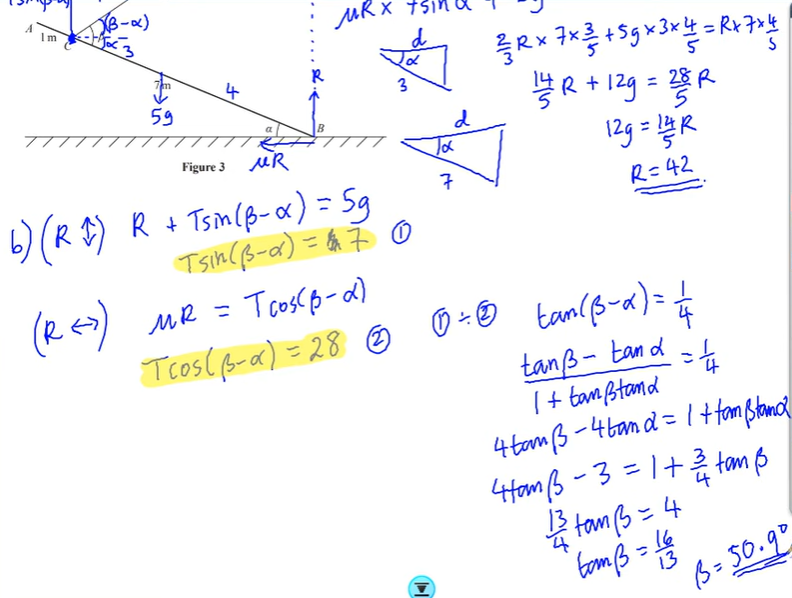 (β-α)
A
1m
C
α
3
7m
4
5g
R
α
B
μR
Figure 3
d
α
3
d
α
7
2/3 R × 7 × 3/5 + 5g × 3 × 4/5 = R × 7 × 4/5
14/5 R + 12g = 28/5 R
12g = 14/5 R
R = 42
b) (R ↕) R + Tsin(β-α) = 5g
Tsin(β-α) = 7 ①
(R ↔) μR = Tcos(β-α)
Tcos(β-α) = 28 ②
① ÷ ② tan(β-α) = 1/4
tanβ - tanα / 1 + tanβtanα = 1/4
4tanβ - 4tanα = 1 + tanβtanα
4tanβ - 3 = 1 + 3/4 tanβ
13/4 tanβ = 4
tanβ = 16/13
β = 50.9°